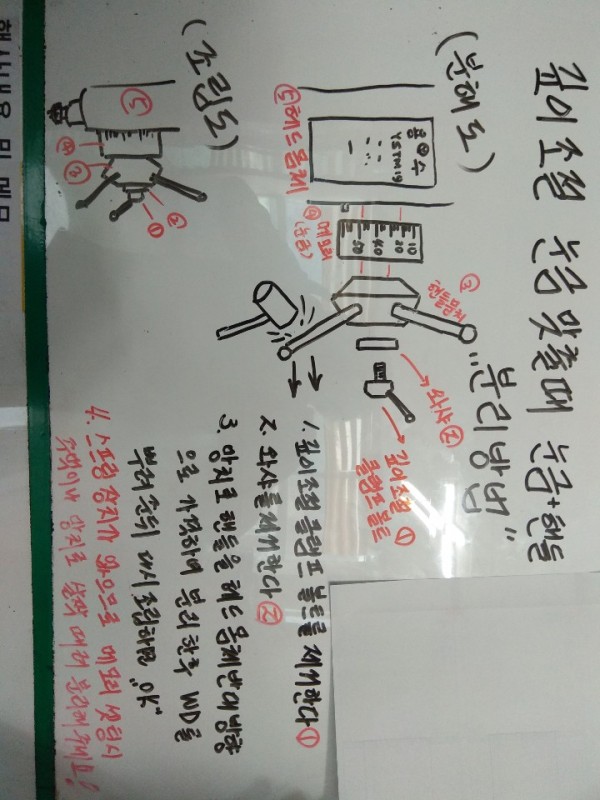 깊이 조절 눈금 맞출때 눈금+핸들
"분리방법"
(분해도)
⑤헤드몸체
용수
YSTM19
④메모리
(눈금)
10
20
40
50
③
핸들몸체
와샤②
깊이조절 ①
클램프볼트
(조립도)
⑤
④
③
②
①
1. 깊이조절 클램프 볼트를 제거한다①
2. 와샤를제거한다②
3. 망치로 핸들을 헤드몸체반대방향
으로 가격하여 분리한후 WD를
뿌려준뒤 다시조립하면 "OK"
4. 스프링 장치가 있으므로 메모리 셋팅시
주먹이나 망치로 살짝 때려 분리해주세요!